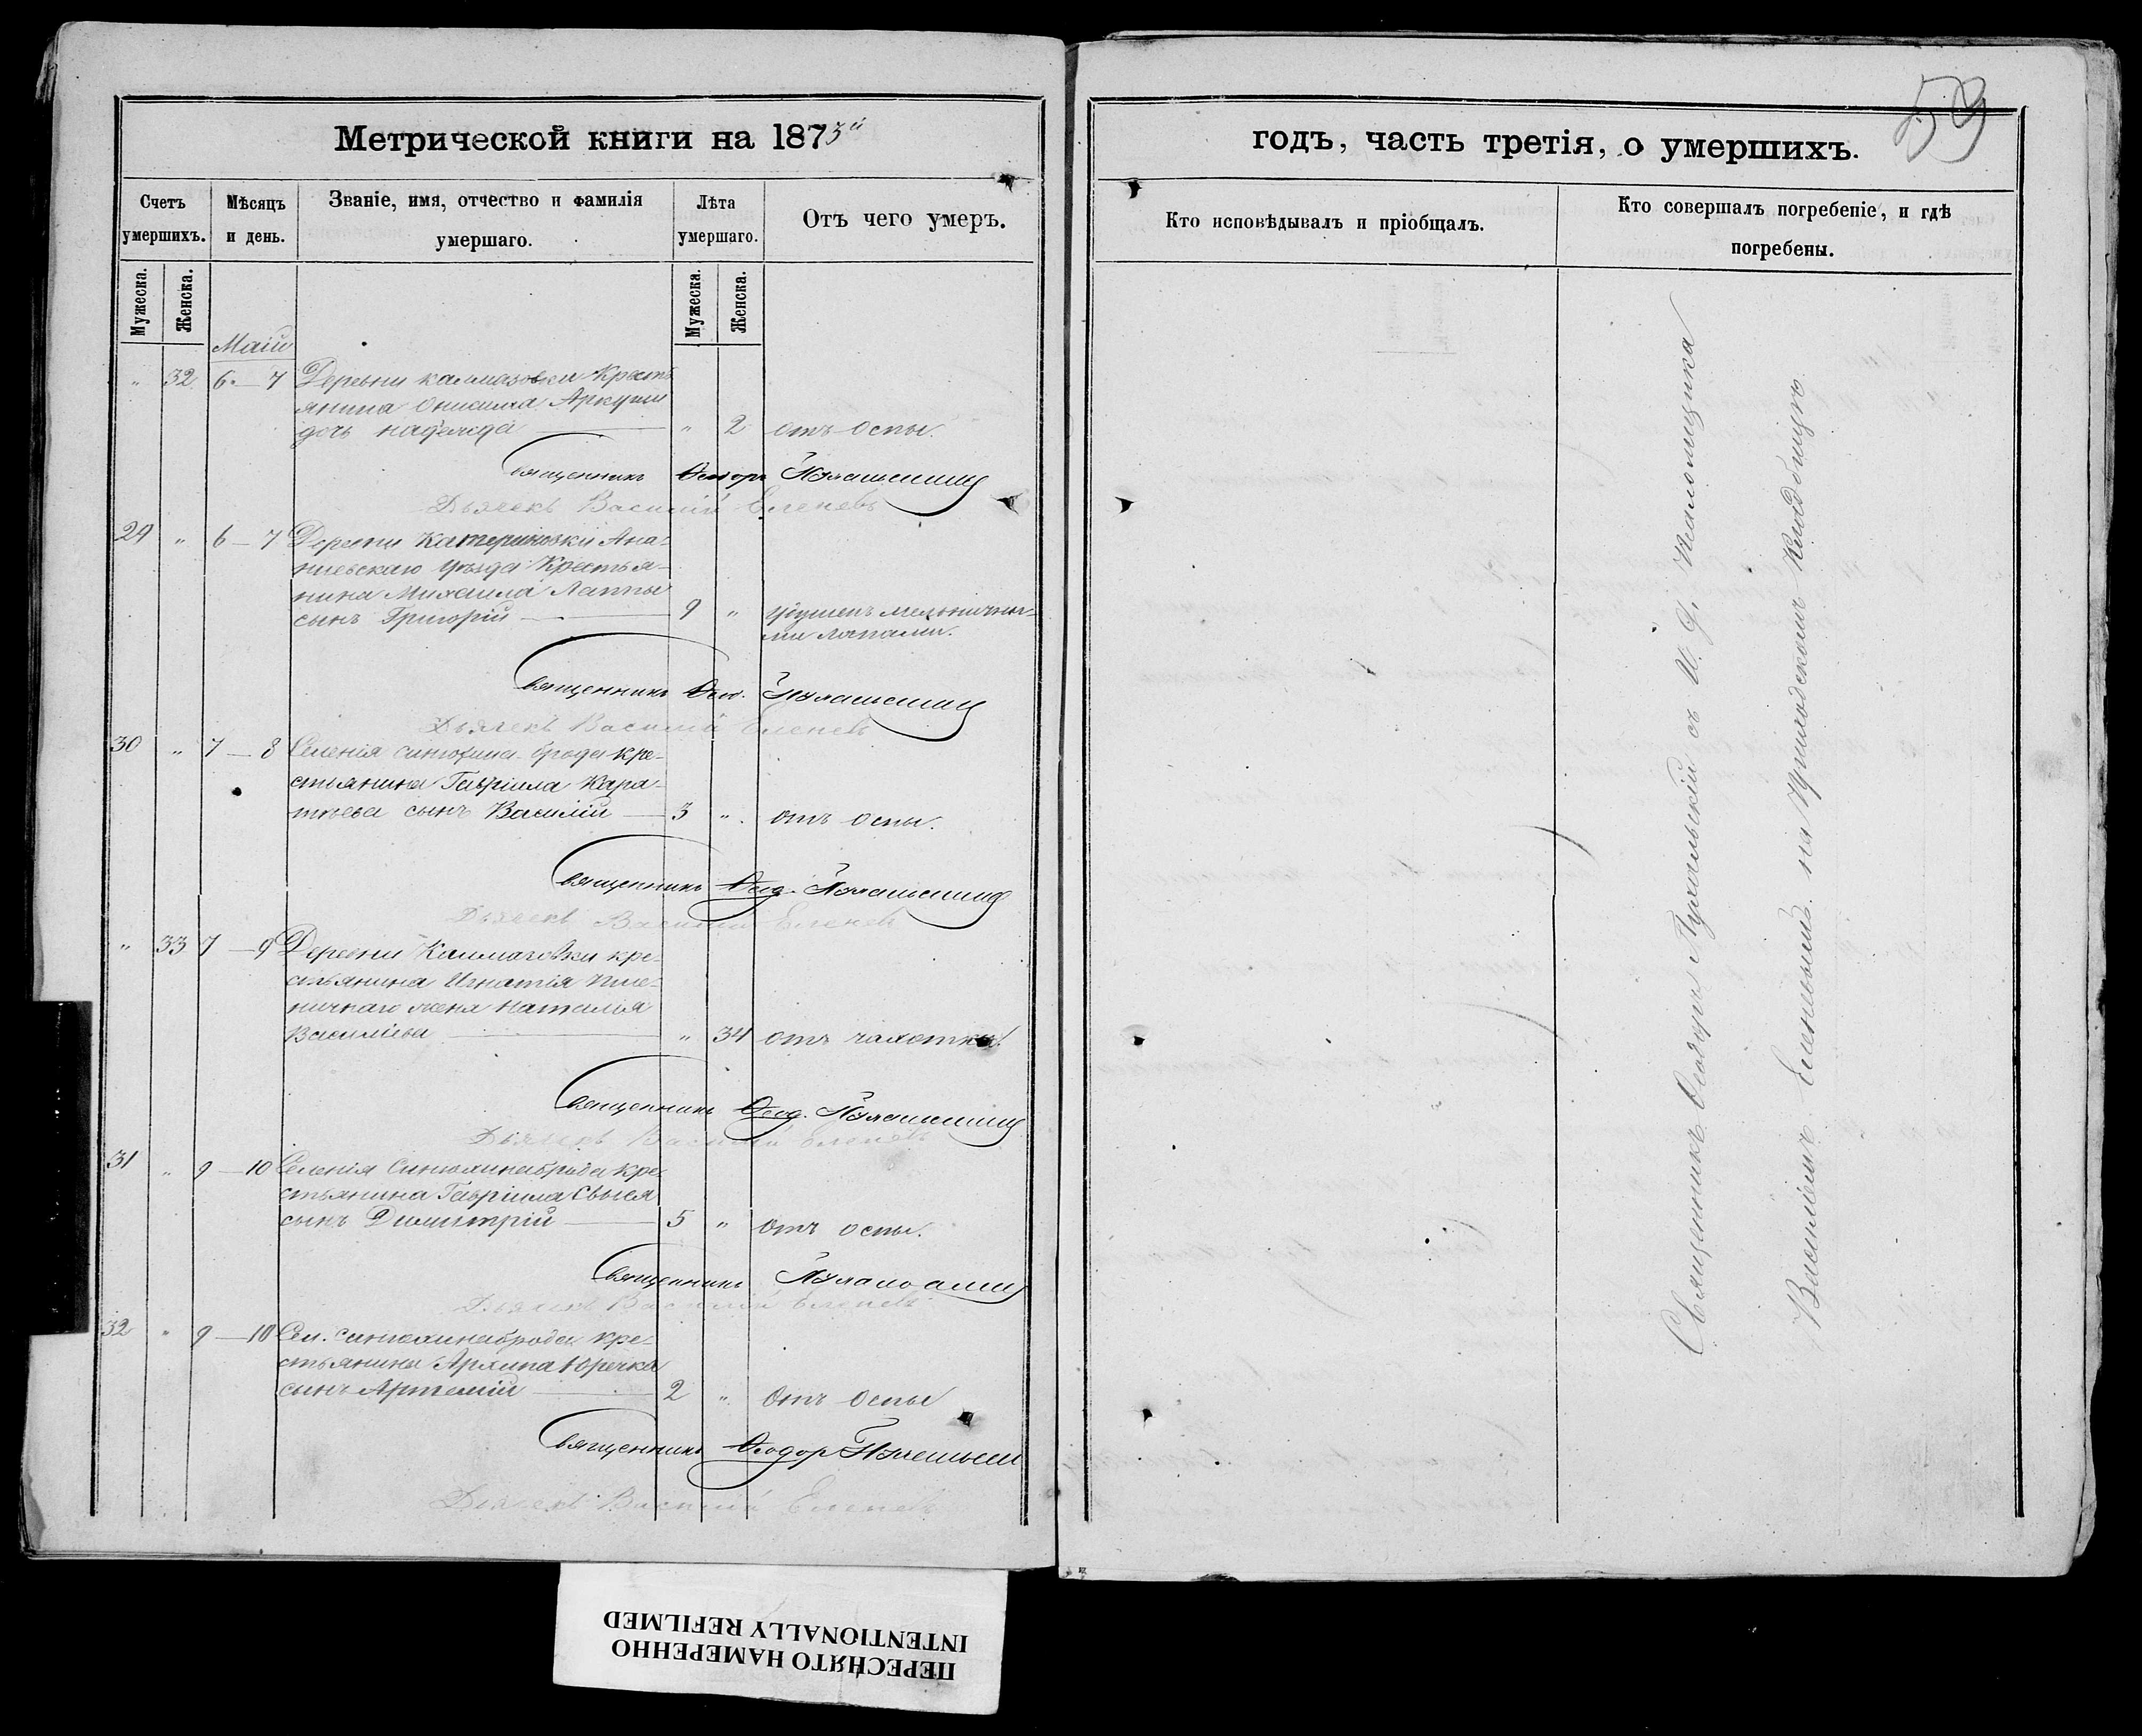 Метрической книги на 1873й
Счетъ умершихъ.
Мѣсяцъ и день.
Званіе, имя, отчество и фамилія умершаго.
Лѣта умершаго.
Отъ чего умеръ.
Мужеска.
Женска.
Мужеска.
Женска.
Маій
" 32 6-7 Деревни Кармазовки Кресть
янина Онисима Аркуши
дочь Надежда " 2 отъ оспы.
Священникъ Ѳеодоръ
Дьячекъ Василій Еленевъ
29 " 6-7 Деревни Катериновки Ана-
ньевскаго уѣзда Крестья-
нина Михаила Лаппы
сынъ Григорій 9 " убушенъ мельнични-
ми лапами.
Священникъ Ѳео.
Дьячекъ Василій Еленевъ
30 " 7-8 Селенія Синюхина брода кре-
стьянина Гавріила Кара-
сынъ Василій 3 " отъ оспы.
Священникъ Ѳеод.
Дьячекъ Василій Еленевъ
" 33 7-9 Деревни кре-
стьянина Игнатія Пше-
ничнаго жена Наталья
Василіева " 34 отъ чахотки
Священникъ Ѳеод.
Дьячекъ Василій Еленевъ
31 " 9-10 Селенія Синюхинаброда кре-
стьянина Гавріила
сынъ Димитрій 5 " отъ оспы.
Священникъ
Дьячекъ Василій Еленевъ
32 " 9-10 Сел. Синюхинаброда кре-
стьянина Архипа Юречка
сынъ Артемій 2 " отъ оспы
Священникъ Ѳеодор
Дьячекъ Василій Еленевъ
59
годъ, часть третія, о умершихъ.
Кто исповѣдывалъ и пріобщалъ.
Кто совершалъ погребеніе, и гдѣ погребены.
Священникъ Ѳеодоръ съ И. д. Псаломщика
Василіемъ Еленевымъ на приходскомъ кладбищѣ
ПЕРЕСНЯТО НАМЕРЕННО
INTENTIONALLY REFILMED